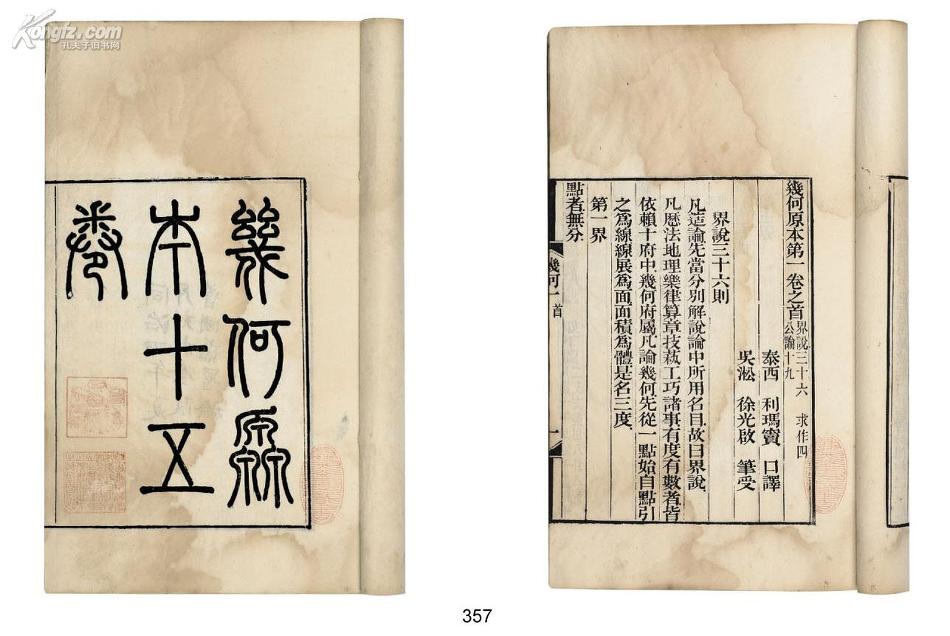 Kongfz.com
孔夫子旧书网
幾何原
本十五
卷
幾何原本第一卷之首 界說三十六 求作四
公論十九
泰西 利瑪竇 口譯
吳淞 徐光啟 筆受
界說三十六則
凡造論先當分別解說論中所用名目故曰界說
凡厯法地理樂律算章技藝工巧諸事有度有數者皆
依賴十府中幾何府屬凡論幾何先從一點始自點引
之為線線展為面面積為體是名三度
第一界
點者無分
幾何一 首
一
357